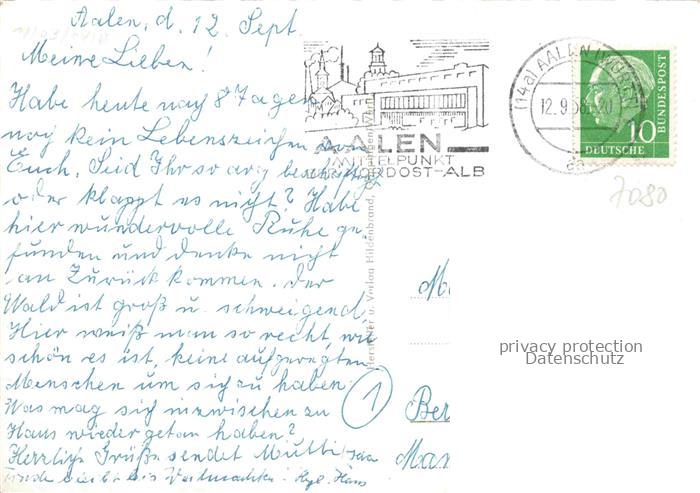 Aalen, d. 12. Sept.
Meine Lieben!
Habe heute nach 8 Tagen
noch kein Lebenszeichen von
Euch. Seid Ihr so arg beschäftigt
oder klappt es nicht? Habe
hier wundervolle Ruhe ge-
funden und denke nicht
an Zurück kommen. Der
Wald ist groß u. schweigend.
Hier weiß man so recht, wie
schön es ist, keine aufgeregten
Menschen um sich zu haben.
Was mag sich inzwischen zu
Haus wieder getan haben?
Herzliche Grüße sendet Mutti
bis Weihnachten! Hans
AALEN
MITTELPUNKT
DER NORDOST-ALB
(14a) AALEN (WÜRTT)
12.9.58.-20
da
10
DEUTSCHE
BUNDESPOST
7080
Hersteller u. Verlag Hildenbrand,
M
Ber
Man
1
privacy protection
Datenschutz